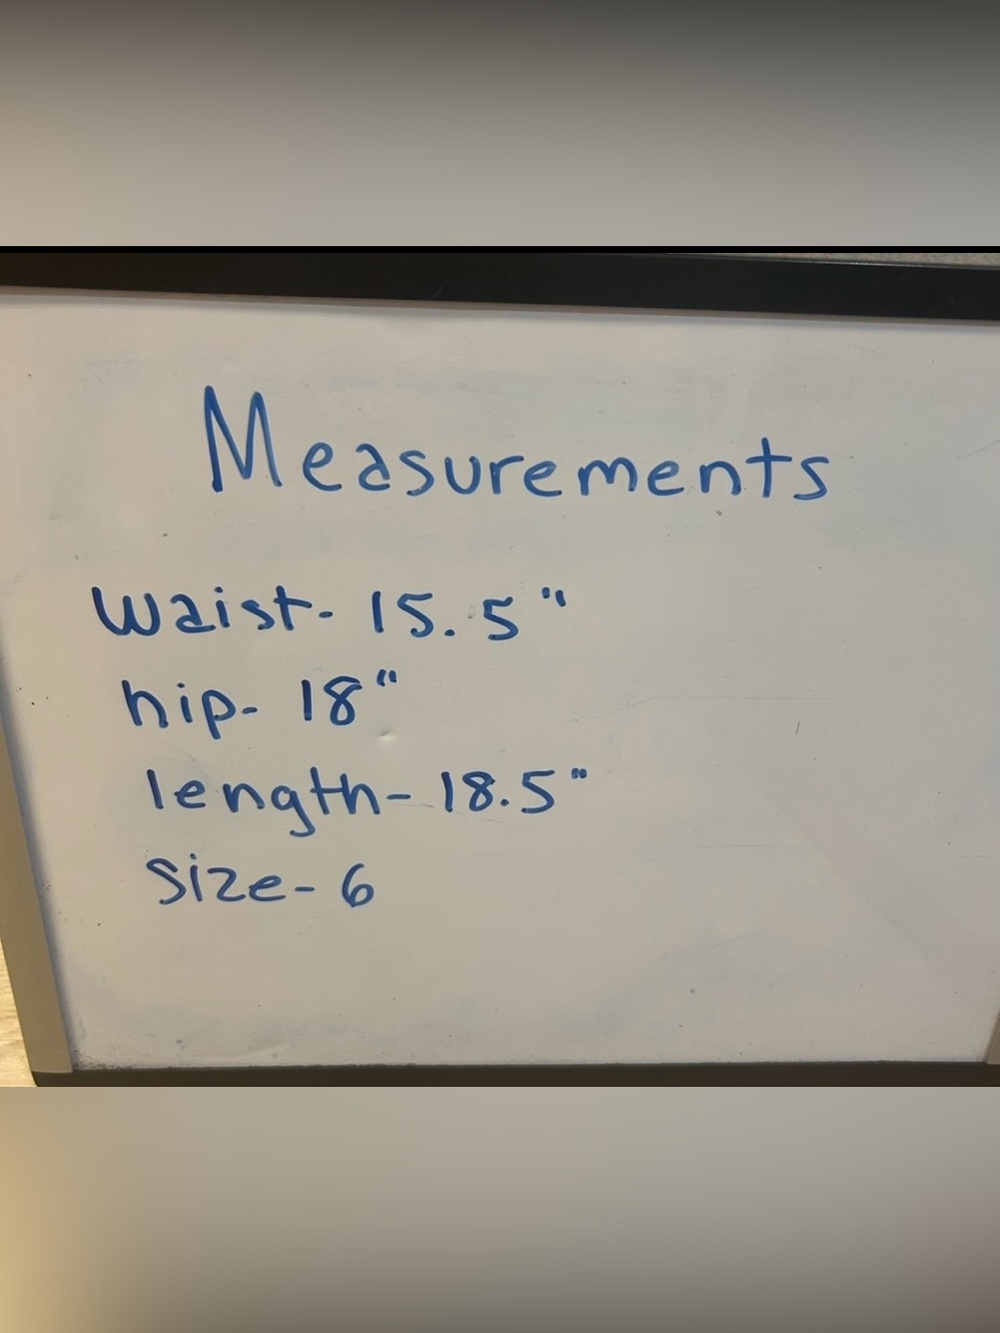 Measurements
Waist- 15.5"
hip- 18"
length- 18.5"
Size- 6